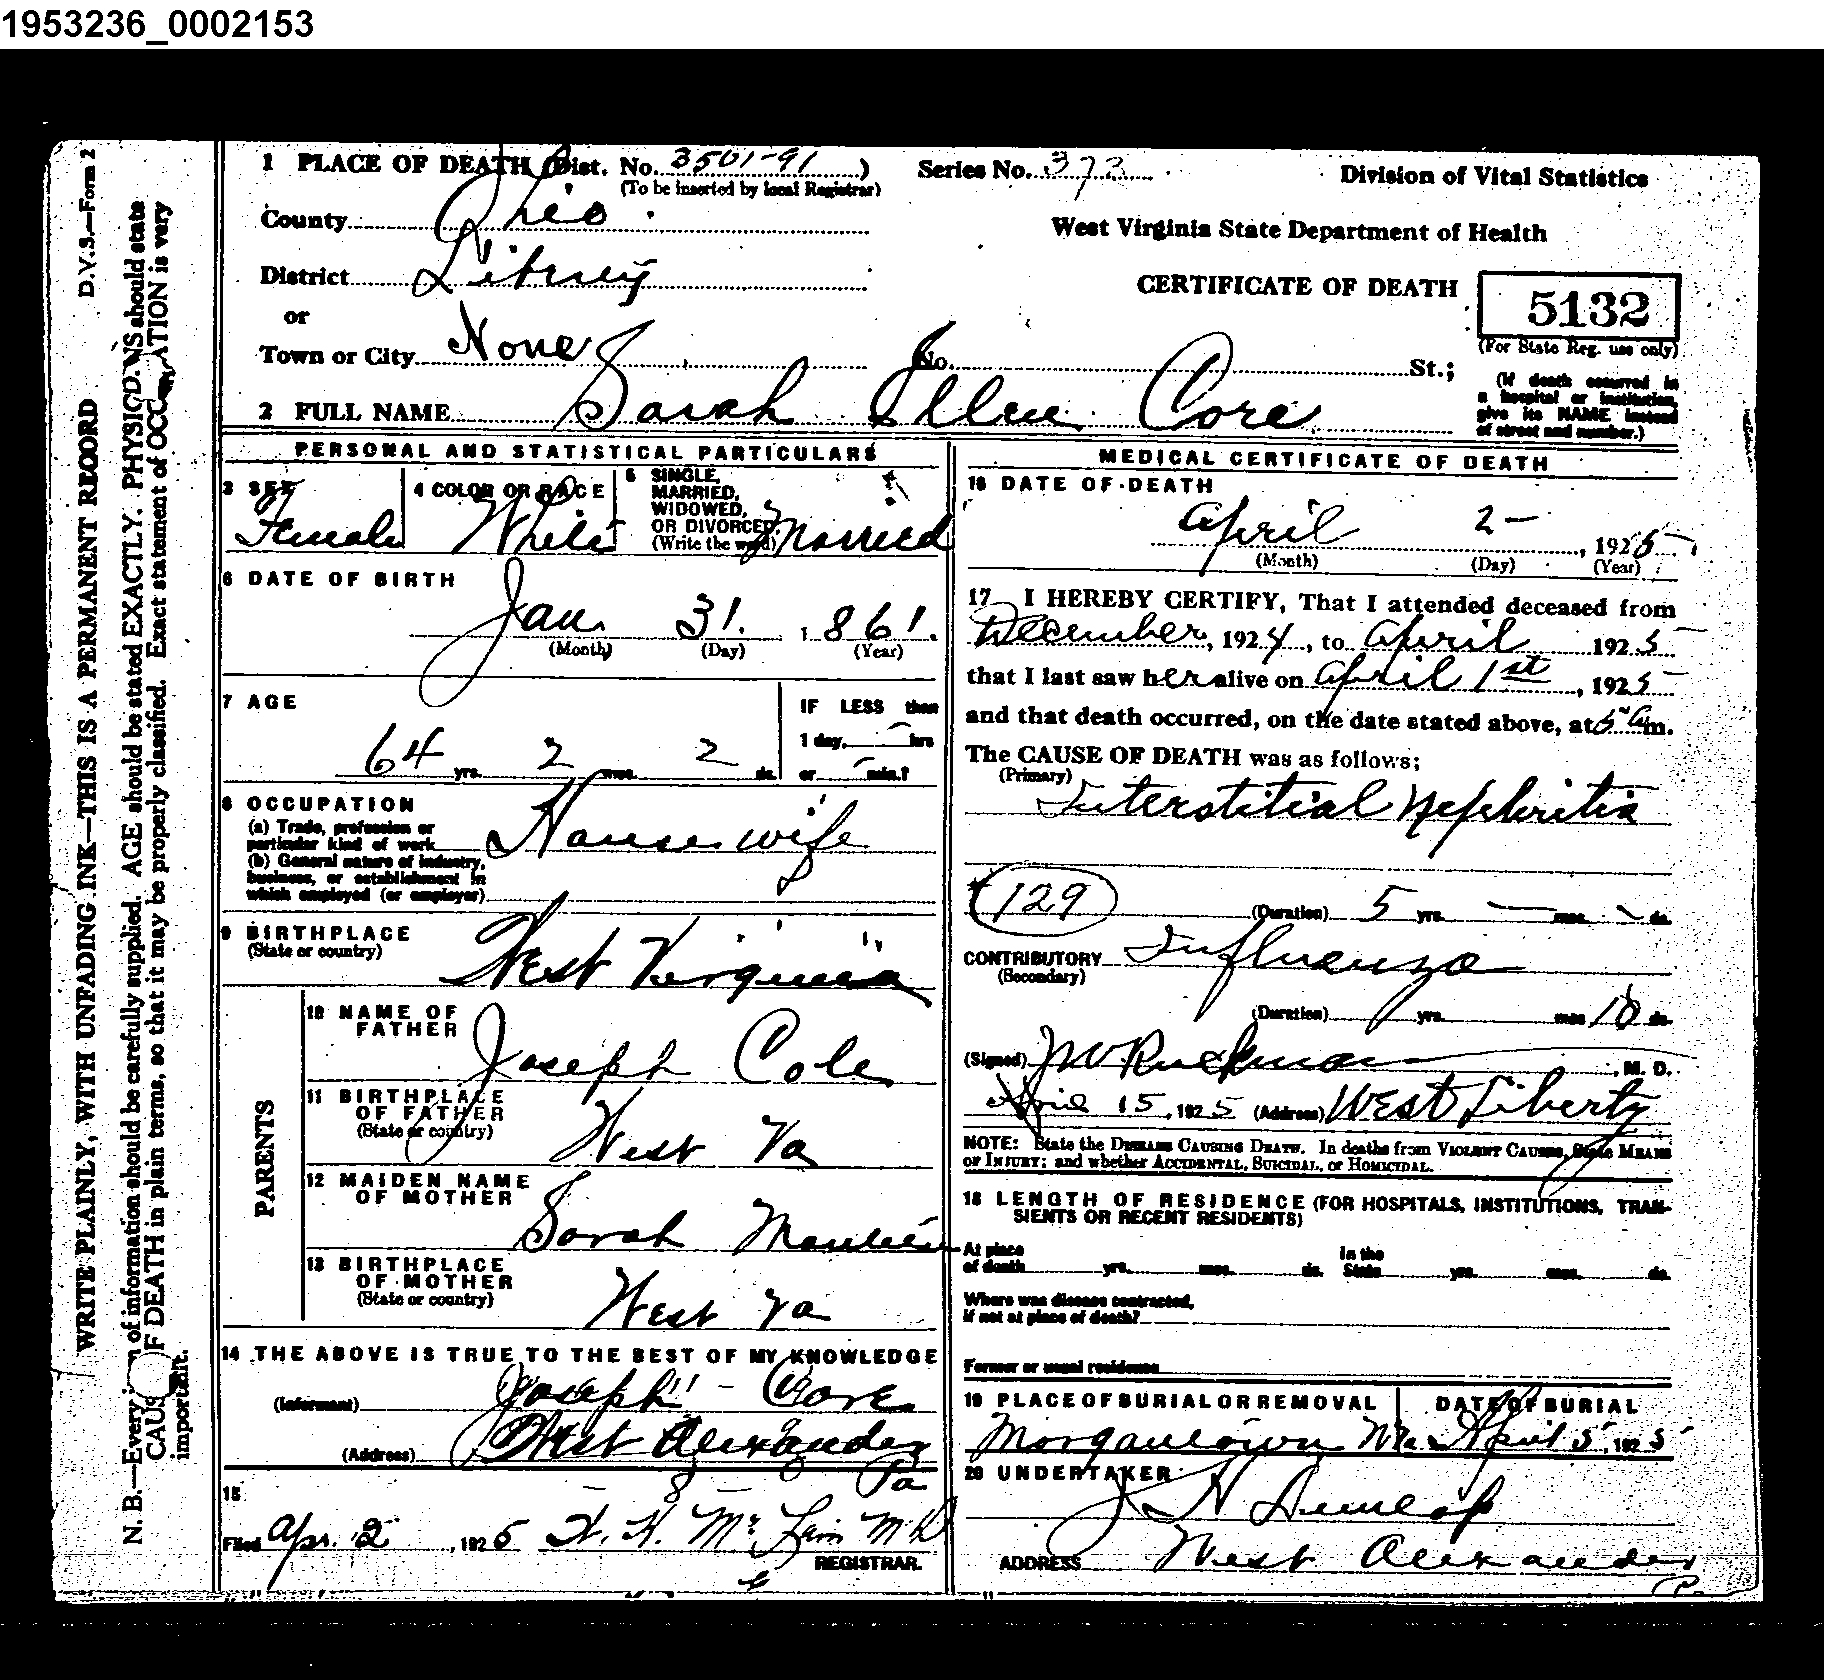 1953236_0002153
1 PLACE OF DEATH (Dist. No. 3501-91 ) Series No. 373 Division of Vital Statistics
(To be inserted by local Registrar)
County Ohio West Virginia State Department of Health
District Liberty
CERTIFICATE OF DEATH 5132
or
Town or City None No. St.; (For State Reg. use only)
(If death occurred in
a hospital or institution,
give its NAME instead
of street and number.)
2 FULL NAME Sarah Ellen Core
PERSONAL AND STATISTICAL PARTICULARS
3 SEX Female 4 COLOR OR RACE White 5 SINGLE,
MARRIED,
WIDOWED,
OR DIVORCED
(Write the word) Married
6 DATE OF BIRTH
Jan. 31. 1861.
(Month) (Day) (Year)
7 AGE IF LESS than
1 day, — hrs
64 yrs. 2 mos. 2 ds. or — min.?
8 OCCUPATION
(a) Trade, profession or
particular kind of work House wife
(b) General nature of industry,
business, or establishment in
which employed (or employer)
9 BIRTHPLACE
(State or country) West Virginia
PARENTS
10 NAME OF
FATHER Joseph Cole
11 BIRTHPLACE
OF FATHER
(State or country) West Va
12 MAIDEN NAME
OF MOTHER Sarah
13 BIRTHPLACE
OF MOTHER
(State or country) West Va
14 THE ABOVE IS TRUE TO THE BEST OF MY KNOWLEDGE
(Informant) Joseph Core
(Address) West Alexander
Pa
15
Filed Apr. 2, 1925
REGISTRAR.
MEDICAL CERTIFICATE OF DEATH
16 DATE OF DEATH
April 2 — , 1925
(Month) (Day) (Year)
17 I HEREBY CERTIFY, That I attended deceased from
December, 1924, to April 1925
that I last saw her alive on April 1st, 1925
and that death occurred, on the date stated above, at 5 am.
The CAUSE OF DEATH was as follows;
(Primary)
Interstitial Nephritis
129
(Duration) 5 yrs. — mos. — ds.
CONTRIBUTORY Influenza
(Secondary)
(Duration) yrs. mos 10 ds.
(Signed) J W Ruckman, M. D.
April 15, 1925 (Address) West Liberty
NOTE: State the DISEASE CAUSING DEATH. In deaths from VIOLENT CAUSES, State MEANS
OF INJURY; and whether ACCIDENTAL, SUICIDAL, or HOMICIDAL.
18 LENGTH OF RESIDENCE (FOR HOSPITALS, INSTITUTIONS, TRAN-
SIENTS OR RECENT RESIDENTS)
At place
of death yrs. mos. ds. In the
State yrs. mos. ds.
Where was disease contracted,
if not at place of death?
Former or usual residence
19 PLACE OF BURIAL OR REMOVAL DATE OF BURIAL
Morgantown W Va April 5, 1925
20 UNDERTAKER
Dunlap
ADDRESS West Alexander
Pa
D.V.S.—Form 2
WRITE PLAINLY, WITH UNFADING INK—THIS IS A PERMANENT RECORD
N. B.—Every of information should be carefully supplied. AGE should be stated EXACTLY. PHYSICIANS should state
CAUS OF DEATH in plain terms, so that it may be properly classified. Exact statement of OCCUPATION is very
important.